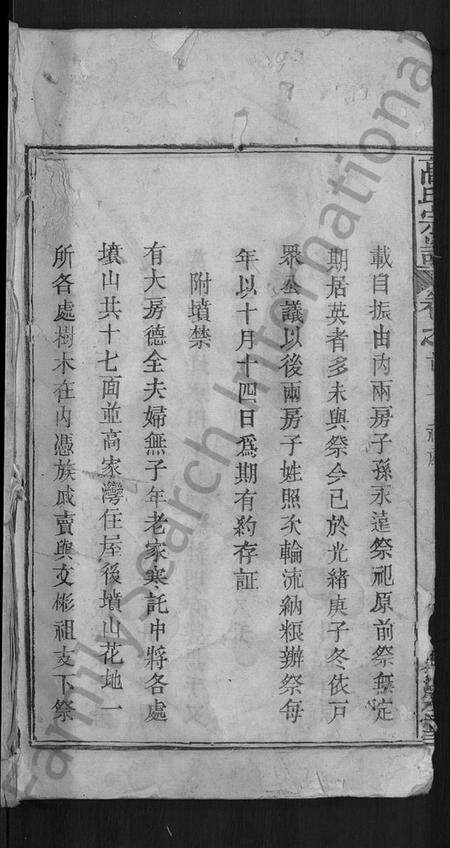 高氏宗譜 卷之
載自振由內兩房子孫永遠祭祀原前祭無定
期居英者多未與祭今已於光緒庚子冬依戸
眾公議以後兩房子姓照次輪流納粮辦祭每
年以十月十四日爲期有約存証
附墳禁
有大房德全夫婦無子年老家寒託中將各處
墳山共十七面並高家灣住屋後墳山花地一
所各處樹木在內憑族戚賣與文彬祖支下祭
FamilySearch International